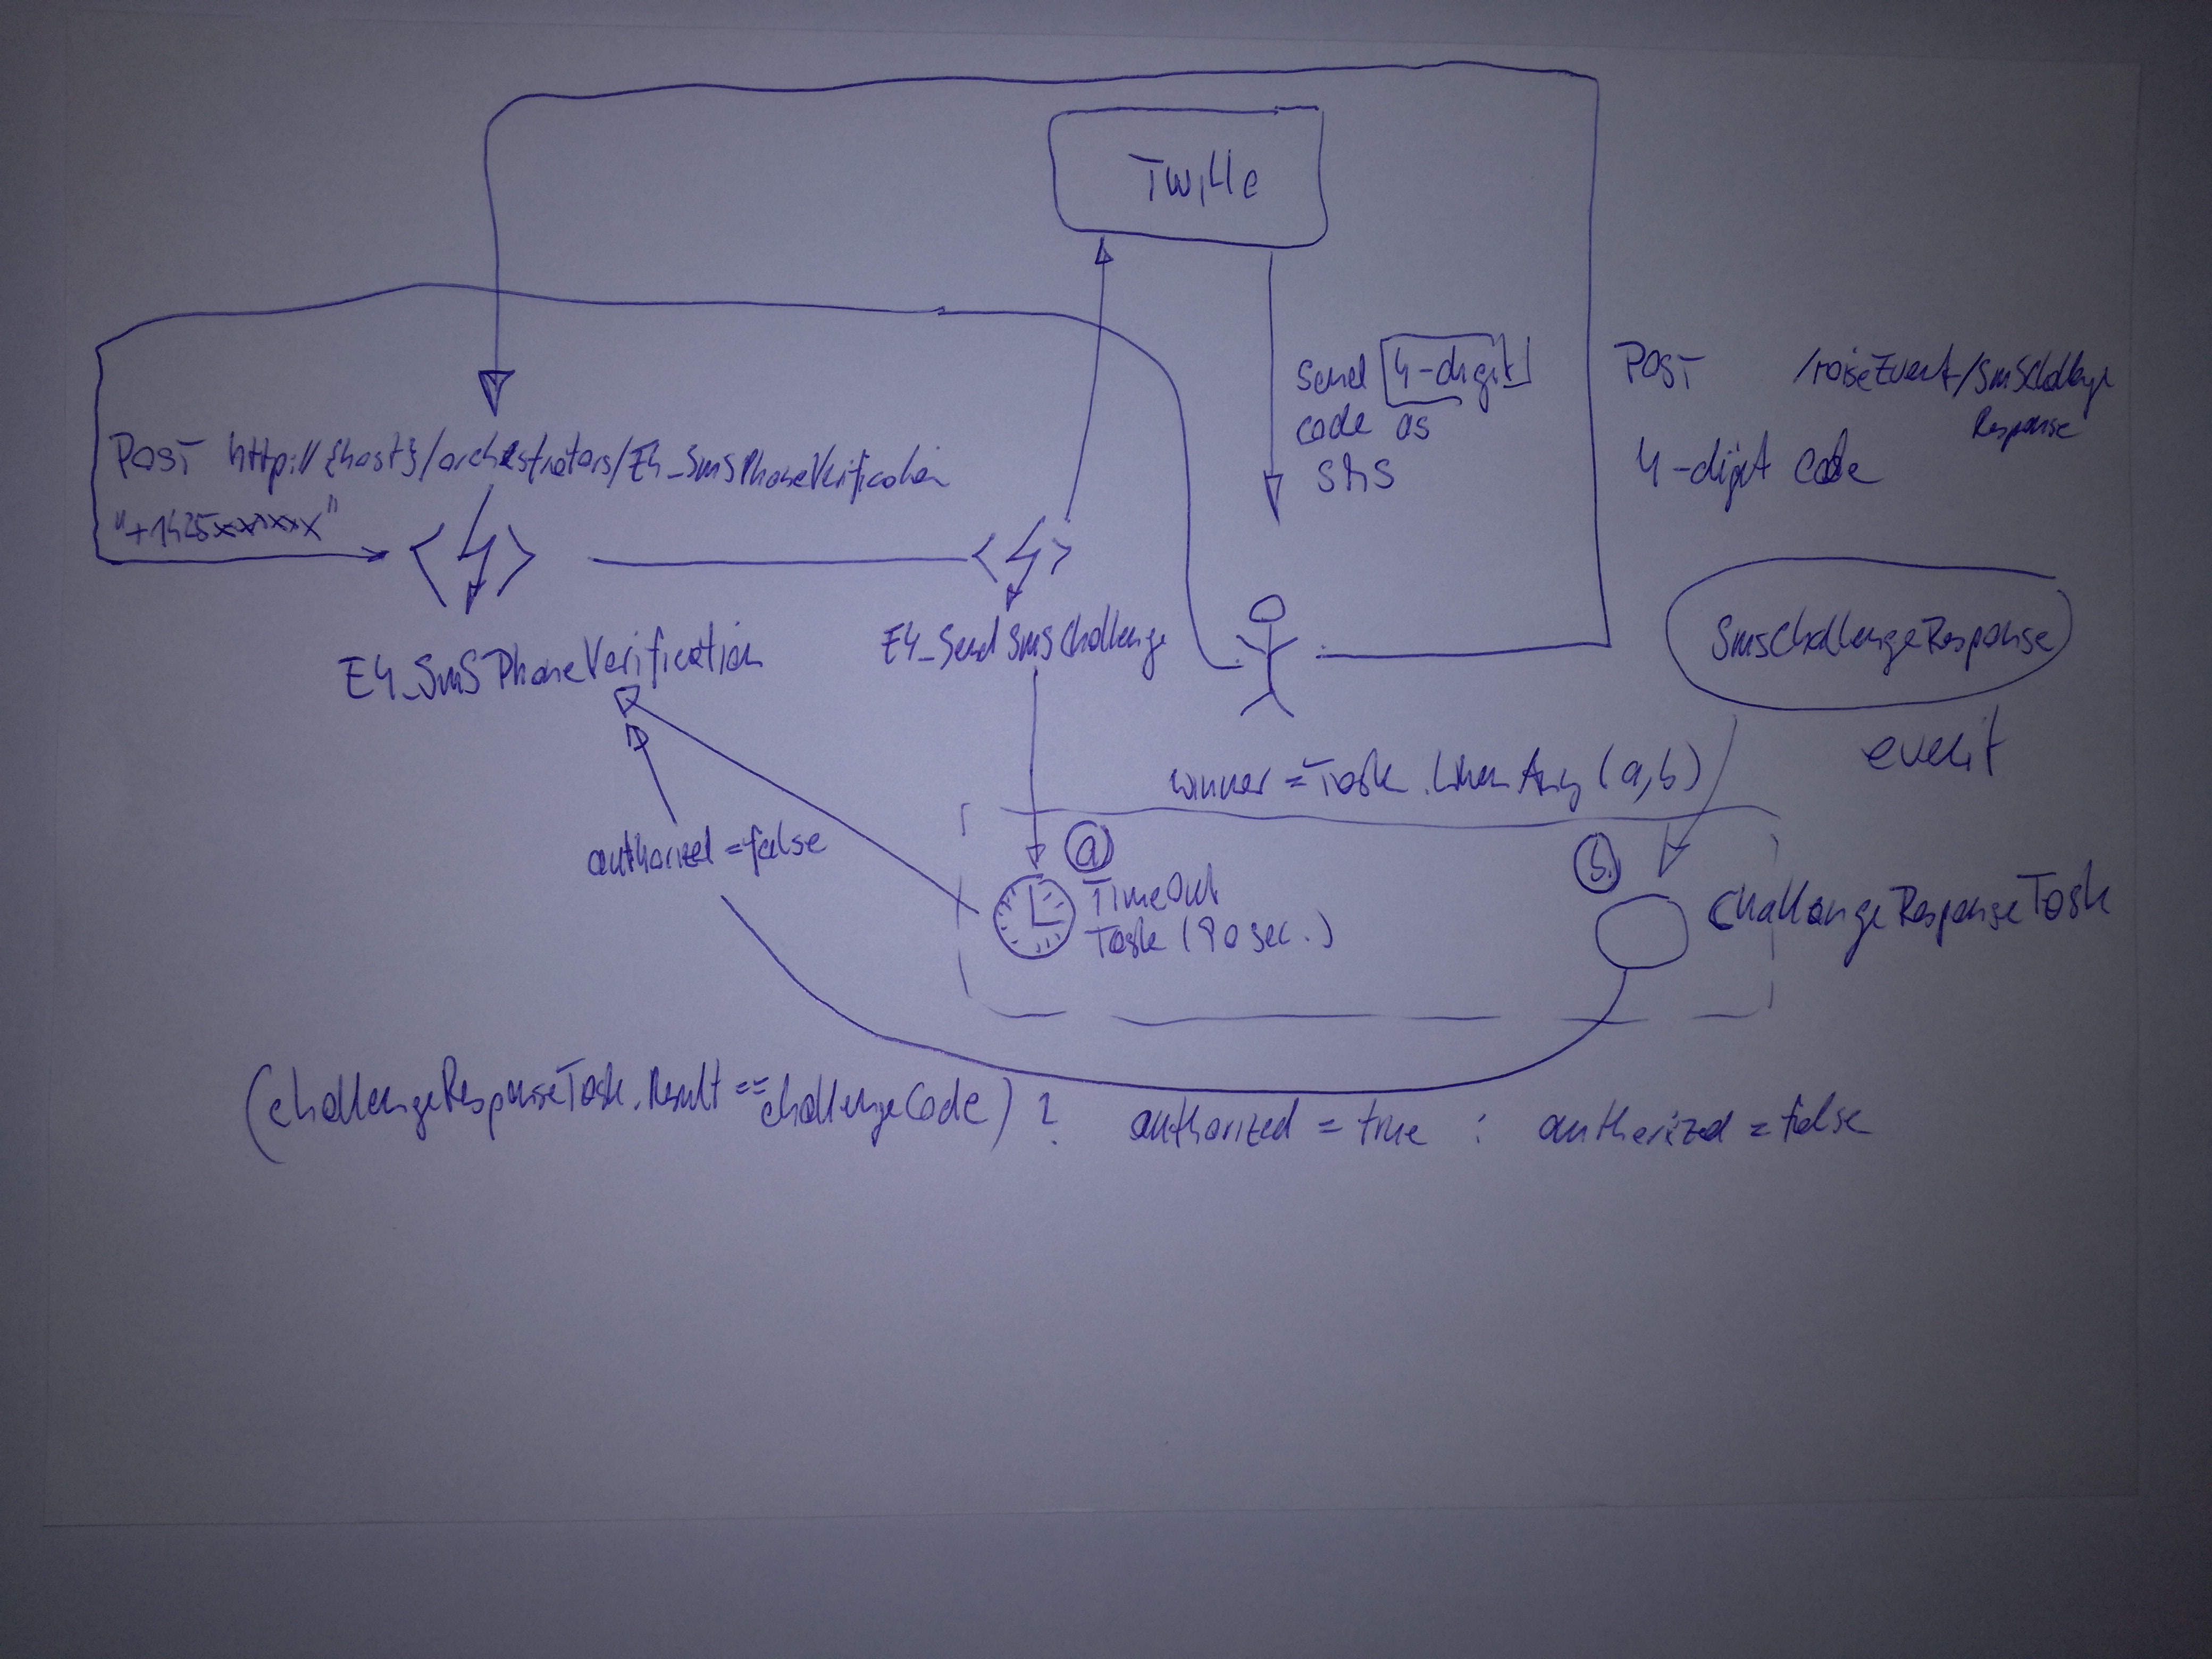 Twilio
send 4-digit
code as
SMS
POST /raiseEvent/SmsChallenge
Response
4-digit code
POST http://{host}/orchestrators/E4_SmsPhoneVerification
"+1425xxxxxx"
E4_SmsPhoneVerification
E4_SendSmsChallenge
SmsChallengeResponse
event
winner = Task.WhenAny (a,b)
authorized = false
a
TimeOut
Task (90 sec.)
b.
ChallengeResponseTask
(challengeResponseTask.Result == challengeCode) ? authorized = true : authorized = false